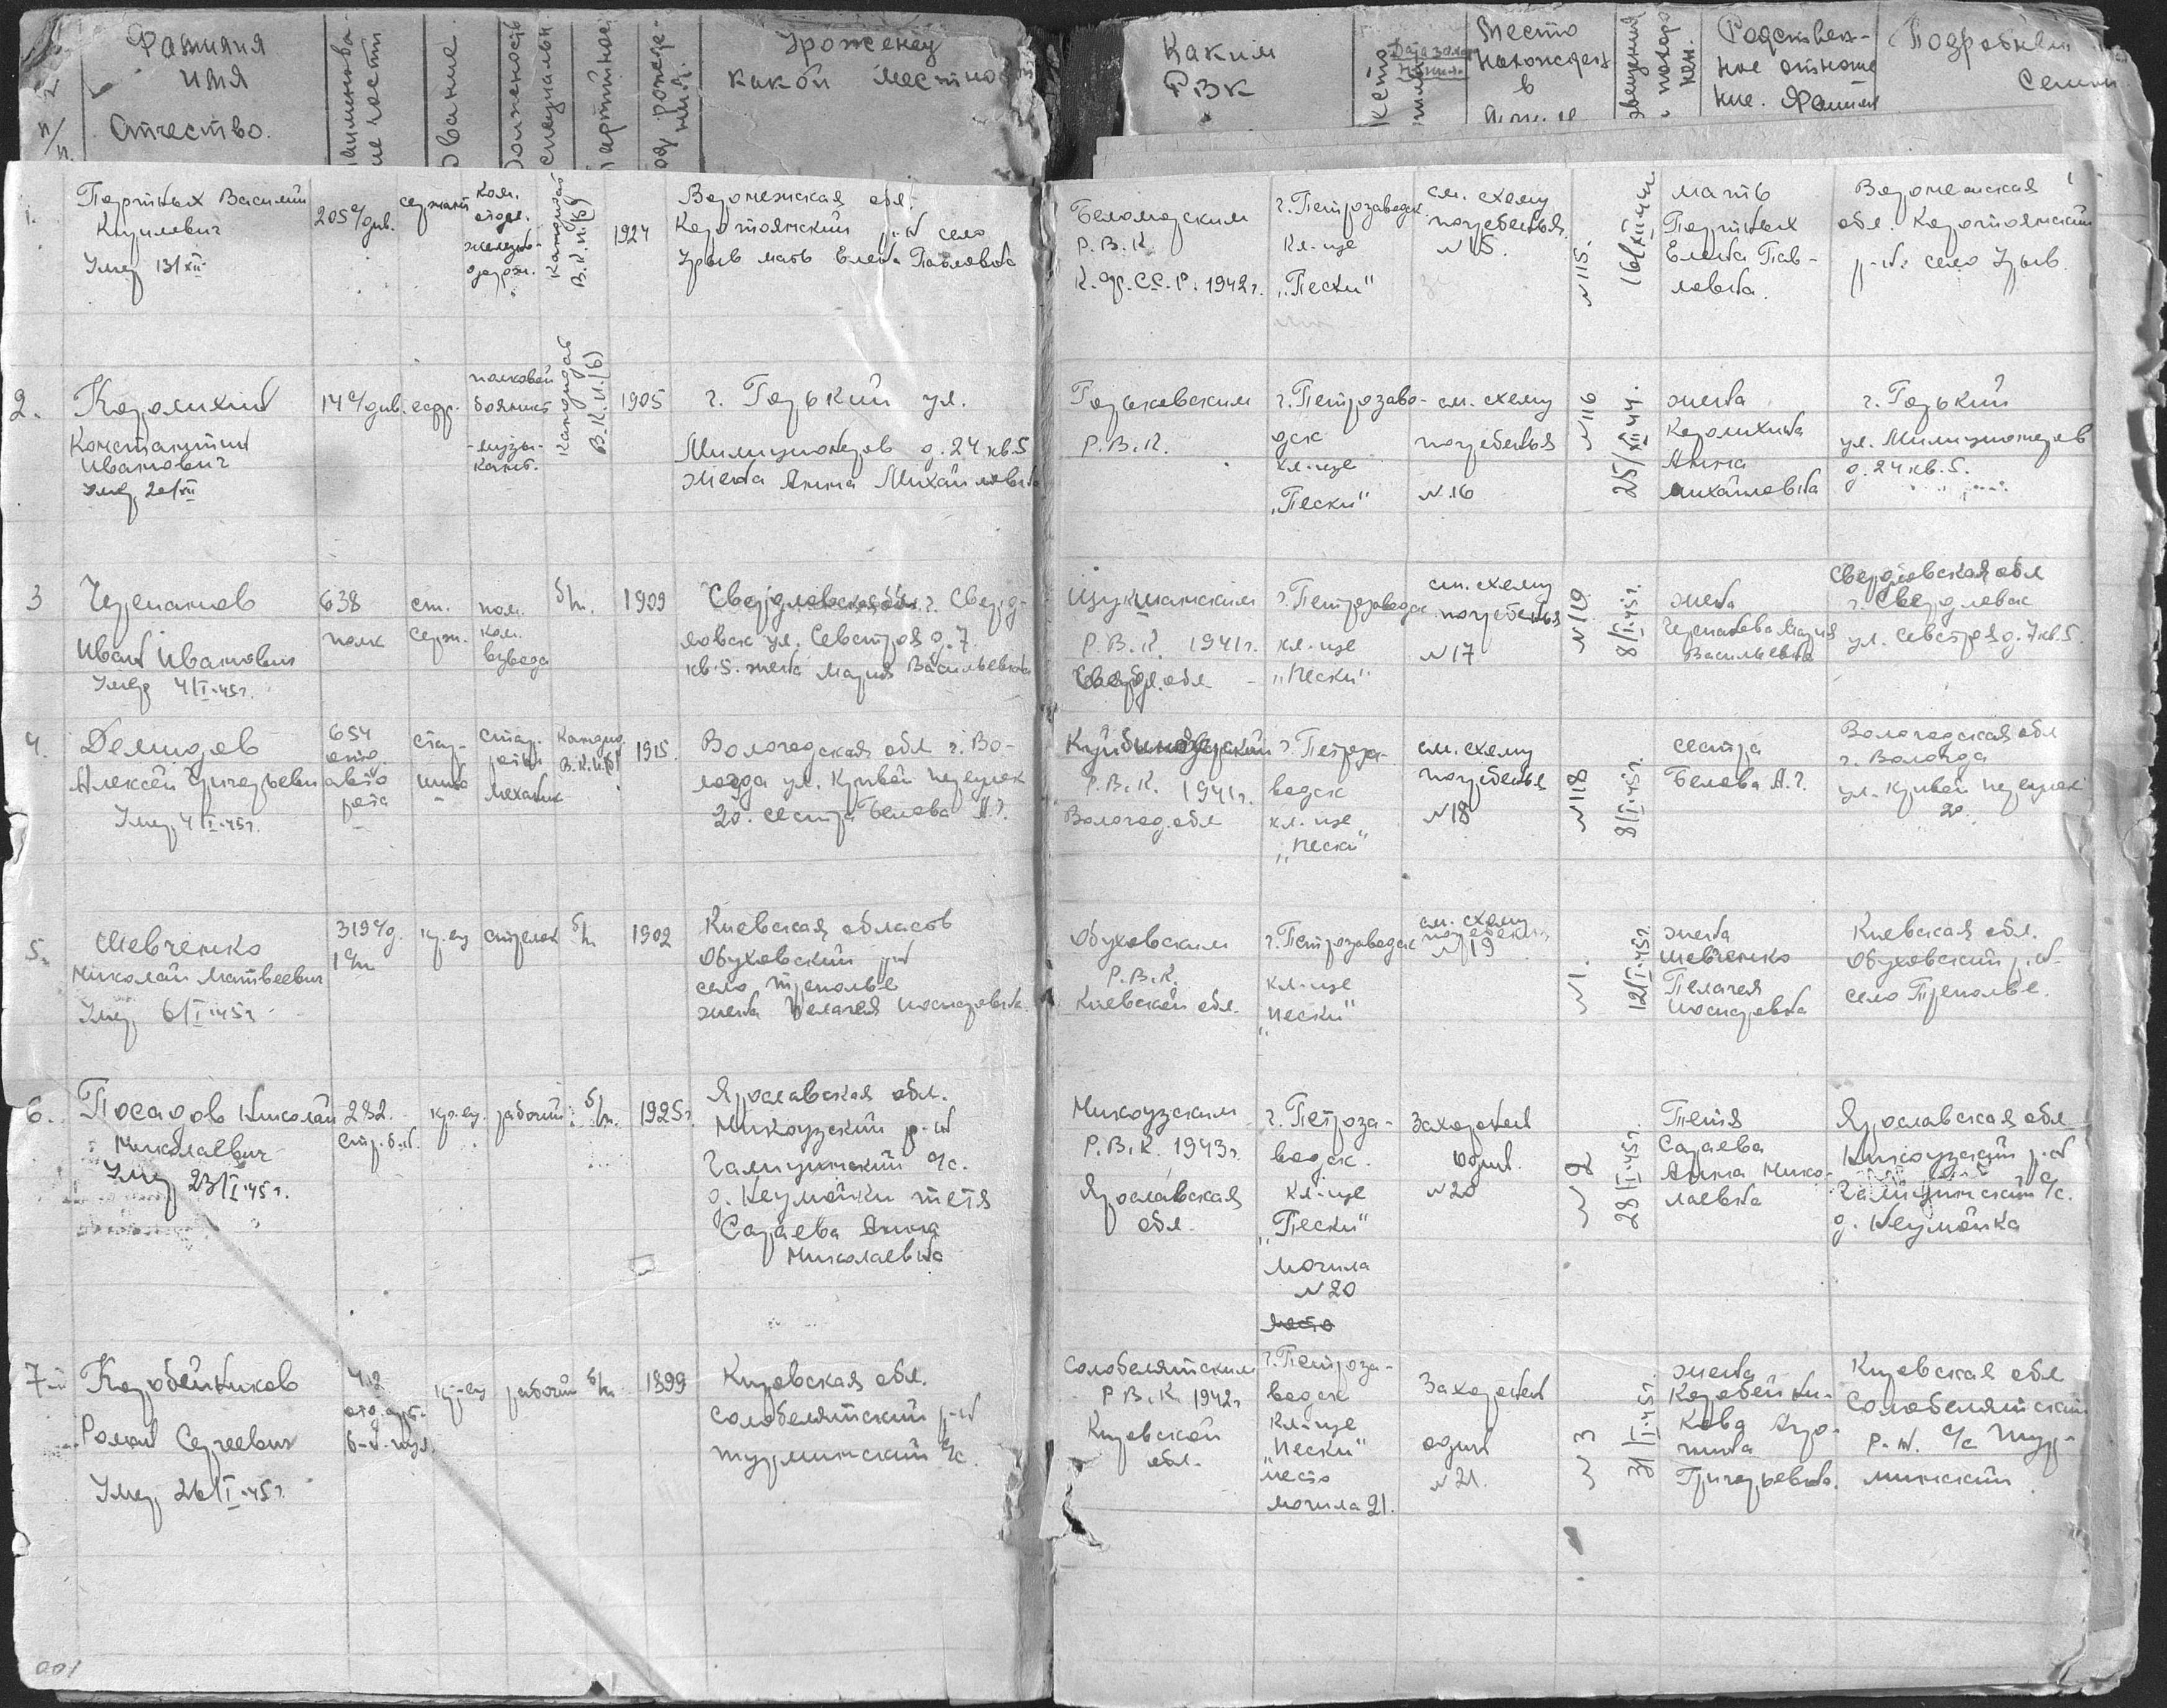 Фамилия
имя
Отчество.
Звание
Уроженец
какой местно
Каким
РВК
Место
Родствен-
ное отноше
ние. Фамил
Подробный
Семьи
1.
Портных Василий
Кирилевич
Умер 13/XII
205 с/див.
сержант
ком.
отдел.
железно-
дорож.
Кандидат
В.К.П.(б)
1924
Воронежская обл.
Коротоякский р-н село
Урыв мать Елена Павловна
Беломорским
Р.В.К.
К.Ф.СС.Р. 1942г.
г. Петрозаводск
Кл-ще
„Пески"
см. схему
погребенья
N 15.
N 115.
16/XII 44г.
мать
Портных
Елена Пав-
ловна.
Воронежская
обл. Коротоякский
р-н. село Урыв.
2.
Королихин
Константин
Иванович
Умер 20/XII
14 с/див.
ефр.
полковой
боянист
-музы-
кант.
Кандидат
В.К.П.(б)
1905
г. Горький ул.
Милиционеров д. 24 кв. 5
жена Анна Михайловна
Горьковским
Р.В.К.
г. Петрозаво-
дск
кл-ще
„Пески"
см. схему
погребенья
N 16
N 116
25/XII 44г.
жена
Королихина
Анна
Михайловна
г. Горький
ул. Милиционеров
д. 24 кв. 5.
3
Черепанов
Иван Иванович
Умер 4/I-45г.
638
полк
ст.
серж.
пом.
ком.
взвода
б/п.
1909
Свердловская обл. г. Сверд-
ловск ул. Севстроя д. 7.
кв. 5. жена Мария Васильевна
Р.В.К. 1941г.
Сверд. обл
г. Петрозаводск
кл-ще
„Пески"
см. схему
погребенья
N 17
N 119
8/I-45г.
жена
Черепанова Мария
Васильевна
Свердловская обл
г. Свердловск
ул. Севстроя д. 7 кв. 5.
4.
Демидов
Алексей Григорьевич
Умер 4/I-45г.
654
отд.
авто
рота
стар-
шина
стар.
механик
Кандид.
В.К.П.(б)
1915
Вологодская обл г. Во-
логда ул. Кривой переулок
20. сестра Белова А.Г.
Р.В.К. 1941г.
Вологод. обл
г. Петроза-
водск
кл-ще
„Пески"
см. схему
погребенья
N 18
N 118
8/I-45г.
сестра
Белова А.Г.
Вологодская обл
г. Вологда
ул. Кривой переулок
20.
5.
Шевченко
Николай Матвеевич
Умер 6/I-45г
319 с/д.
кр-ец
стрелок
б/п
1902
Киевская область
Обуховский р-н
село Триполье
жена Пелагея Иосиповна
Обуховским
Р.В.К.
Киевской обл.
г. Петрозаводск
кл-ще
„Пески"
см. схему
погребенья
N 19
N 1.
12/I-45г.
жена
Шевченко
Пелагея
Иосиповна
Киевская обл.
Обуховский р-н-
село Триполье.
6.
Посадов Николай
Николаевич
Умер 23/I-45г.
282.
стр. б-н.
кр-ец.
рабочий.
б/п.
1925г
Ярославская обл.
Микоузский р-н
Галицинский с/с.
д. Неумойки тетя
Сараева Анна
Николаевна
Микоузским
Р.В.К. 1943г.
Ярославская
обл.
г. Петроза-
водск.
Кл-ще
„Пески"
могила
N 20
место
Захоронен
один.
N 20
N 2
28/I-45г.
Тетя
Сараева
Анна Нико-
лаевна
Ярославская обл
Микоузский р-н
Галицинский с/с.
д. Неумойка
7-й
Коробейников
Роман Сергеевич
Умер 26/I-45г.
кр-ец
рабочий
б/п
1899
Кировская обл.
Солобелятский р-н
Турминский с/с.
Солобелятским
Р.В.К. 1942г
Кировской
обл.
г. Петроза-
водск
Кл-ще
„Пески"
место
могила 21.
Захоронен
один
N 21.
N 3
31/I-45г.
жена
Коробейни-
кова Агро-
пина
Григорьевна.
Кировская обл
Солобелятский
р-н. с/с Тур-
минский.
001